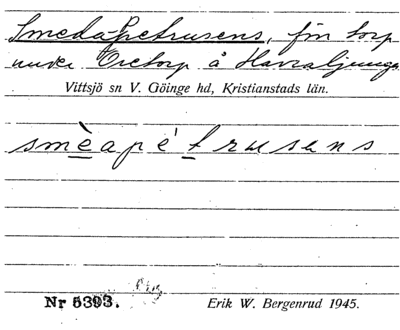 Smeda-Petrusens, förr torp
under Oretorp å Havraljunga
Vittsjö sn V. Göinge hd, Kristianstads län.
smèapétrusens
Nr 5393.
Erik W. Bergenrud 1945.